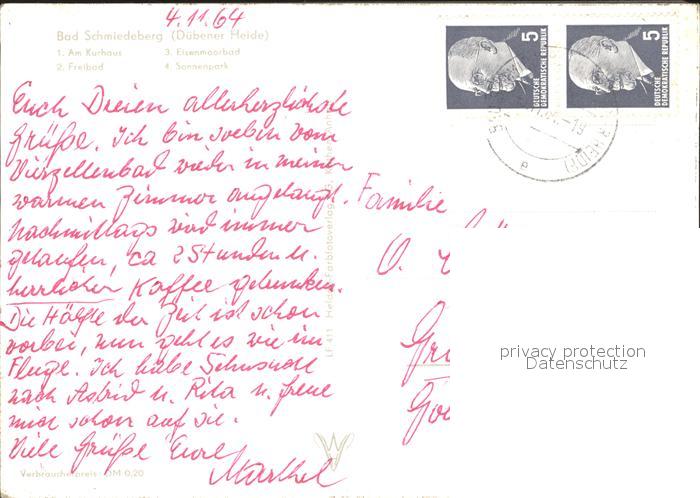 4.11.64
Bad Schmiedeberg (Dübener Heide)
1. Am Kurhaus 3. Eisenmoorbad
2. Freibad 4. Sonnenpark
5 DEUTSCHE DEMOKRATISCHE REPUBLIK
5 DEUTSCHE DEMOKRATISCHE REPUBLIK
Euch Dreien allerherzlichste
Grüße. Ich bin soeben vom
Vierzellenbad wieder in meinem
warmen Zimmer angelangt.
Nachmittags wird immer
gelaufen, ca 2 Stunden u.
herrlicher Kaffee getrunken.
Die Hälfte der Zeit ist schon
vorbei, nun geht es wie im
Fluge. Ich habe Sehnsucht
nach Astrid u. Rita u. freue
mich schon auf sie.
Viele Grüße Eure
Marthel
Verbraucherpreis DM 0,20
LF 411
Familie
O.
privacy protection
Datenschutz